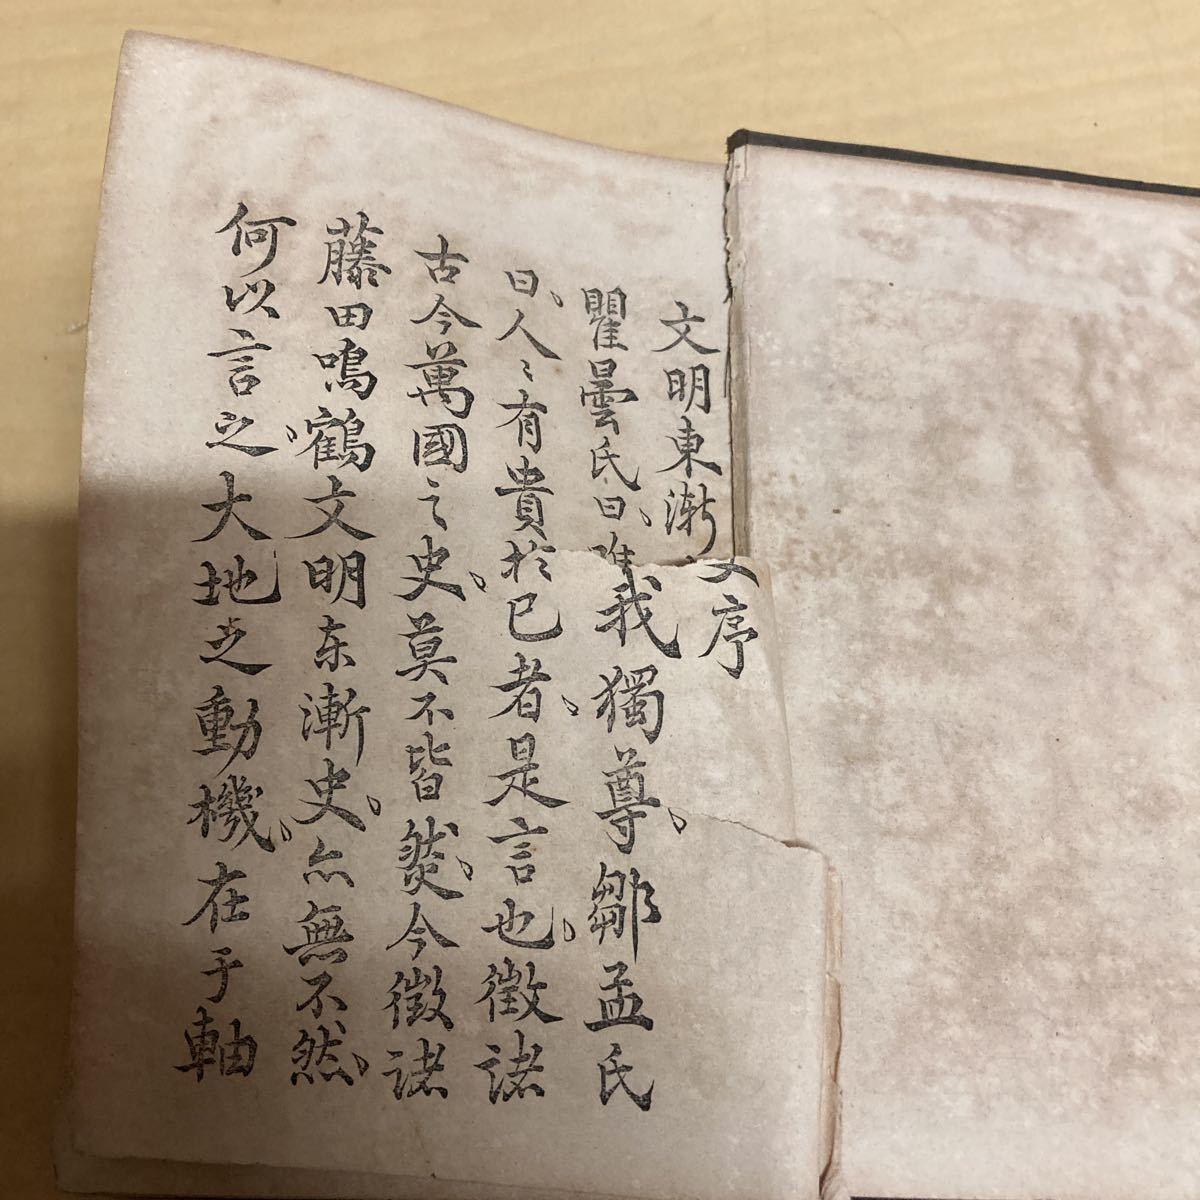 文明東漸史序
瞿曇氏曰、唯我獨尊、鄒孟氏
曰、人々有貴於己者、是言也、徵諸
古今萬國之史、莫不皆然、今徵諸
藤田鳴鶴文明东漸史、亦無不然、
何以言之、大地之動機、在于軸